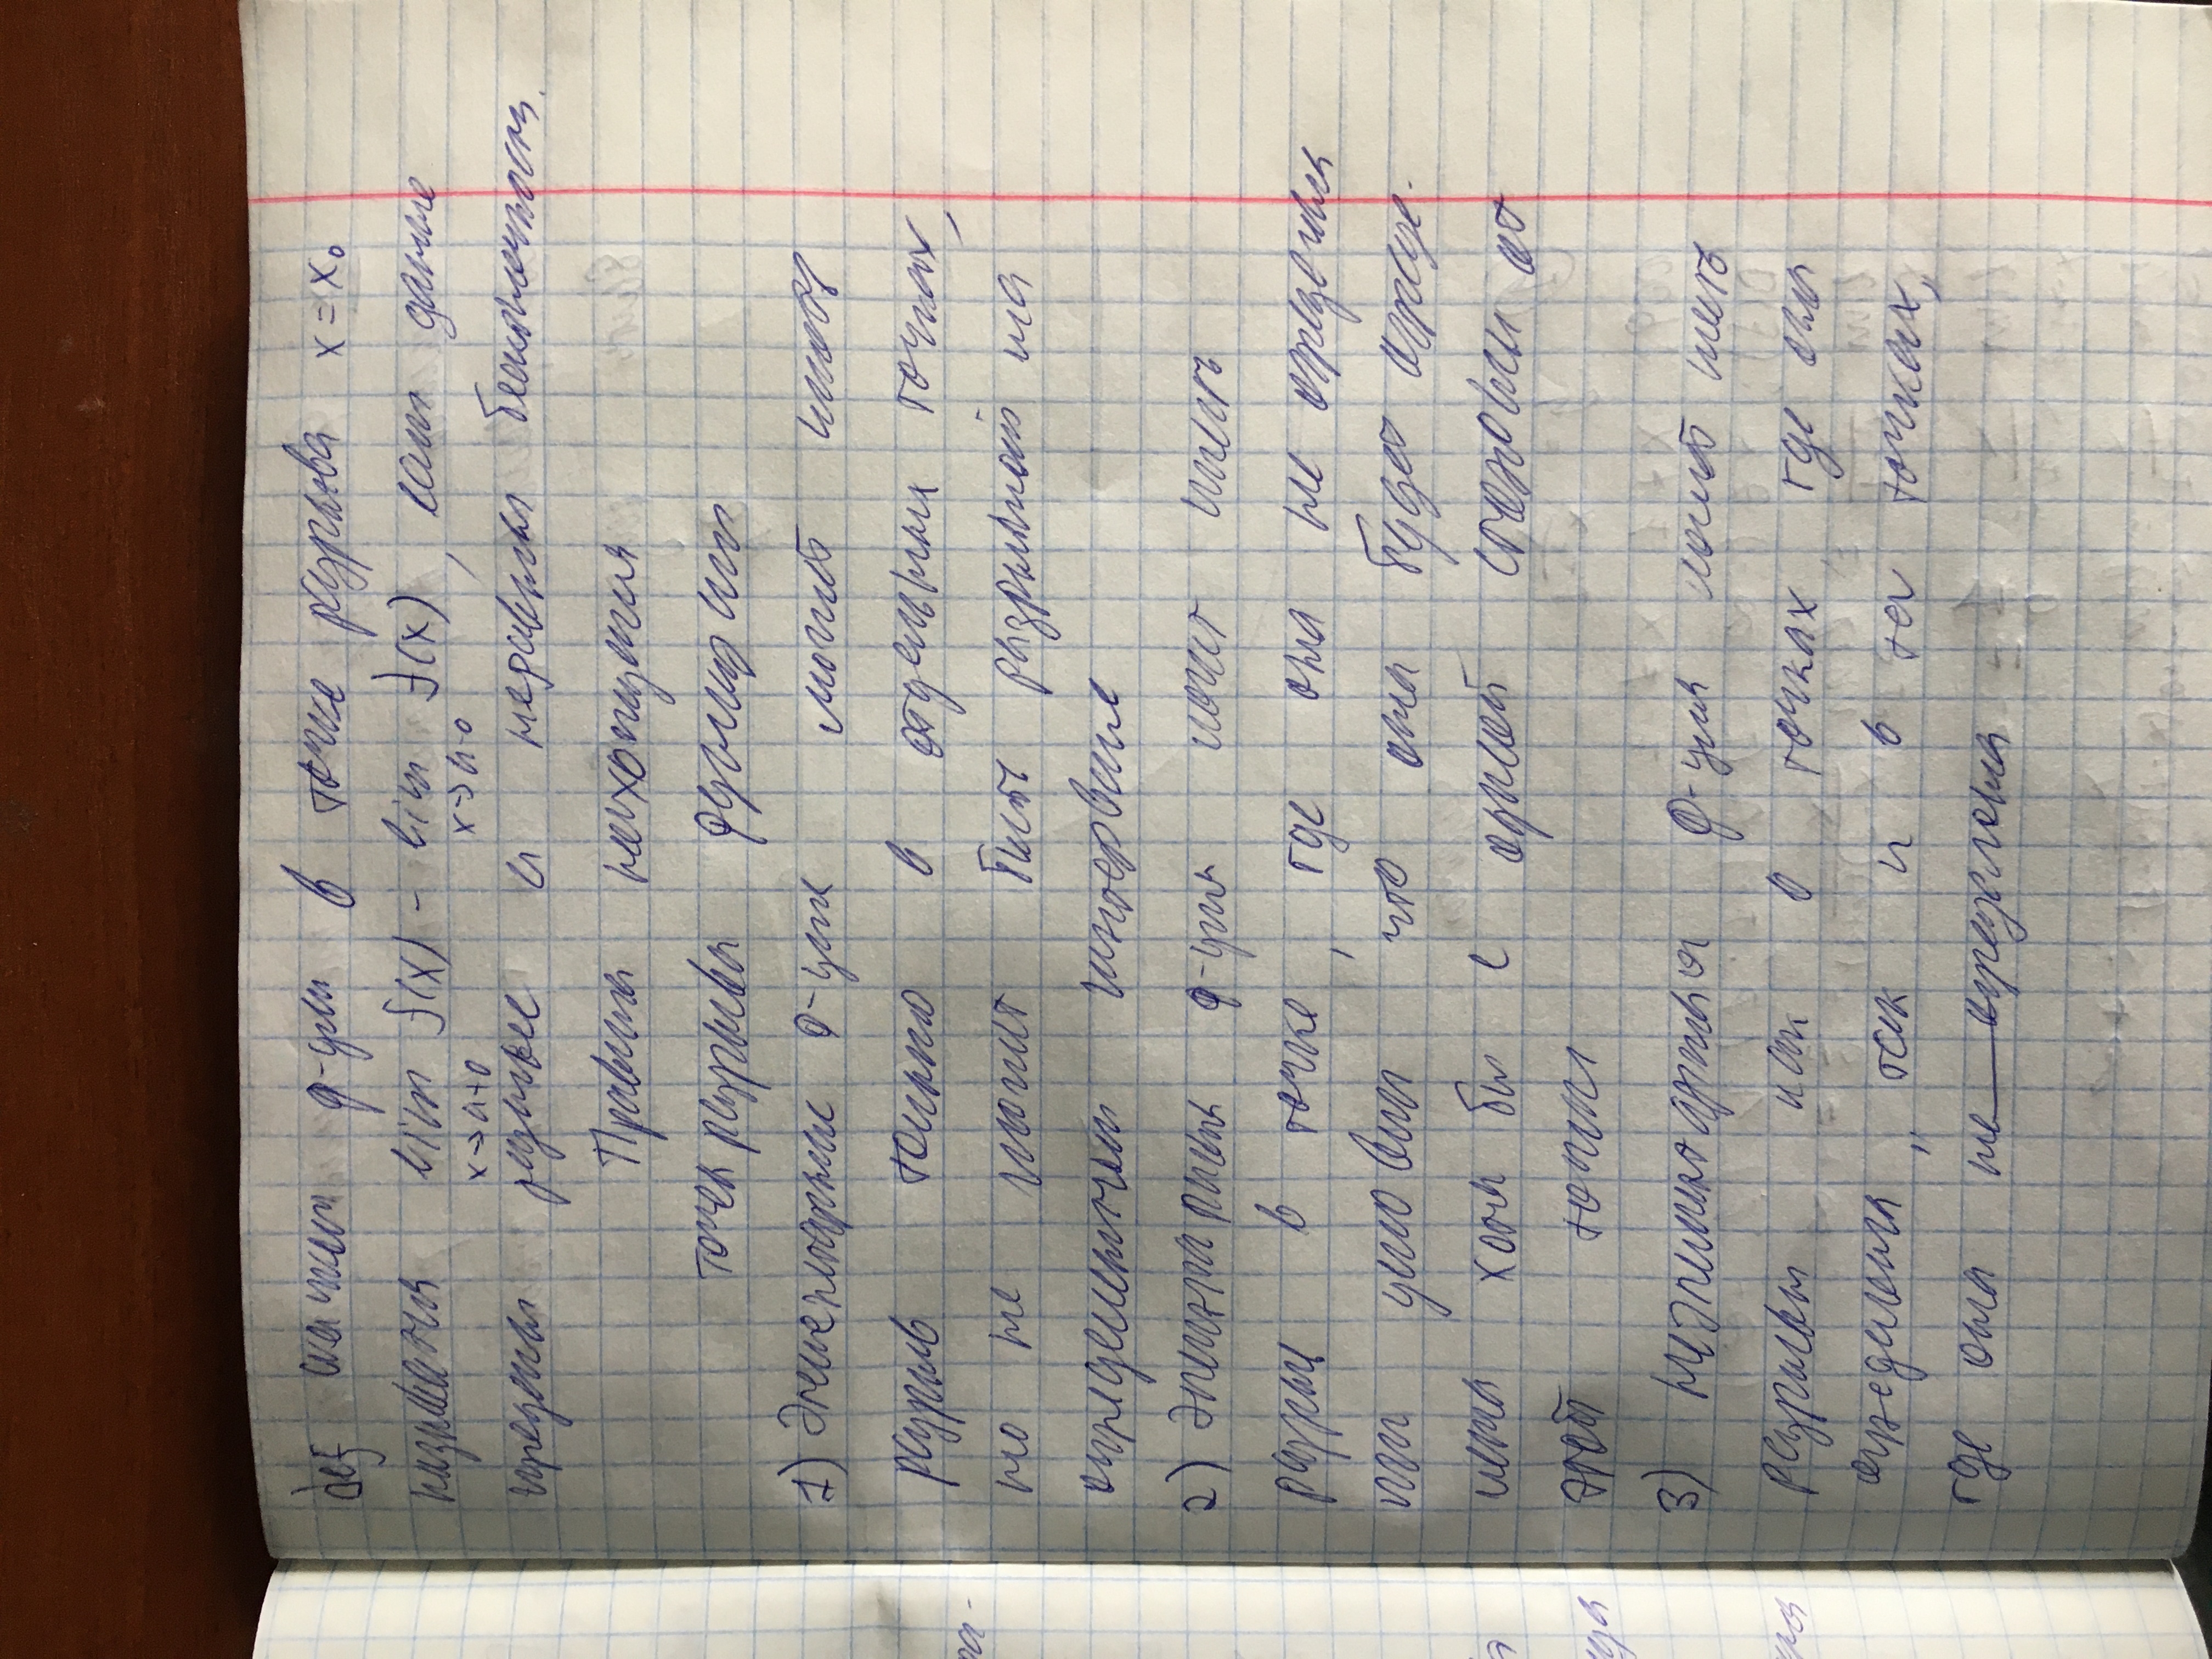 def скачком ф-ции в точке разрыва x = x₀
называется lim f(x) - lim f(x), если данные
x→a+0 x→a-0
пределы различные и неравны бесконечности.
Правила нахождения
точек разрыва функции
1) Элементарные ф-ция может иметь
разрыв только в отдельных точках,
но не может быть разрывной на
определенном интервале
2) Элементарная ф-ция может иметь
разрыв в точке, где она не определена
при условии что она будет опреде-
лена хотя бы с одной стороны от
этой точки
3) Неэлементарная ф-ция может иметь
разрывы как в точках где она
определена, так и в тех точках,
где она не определена